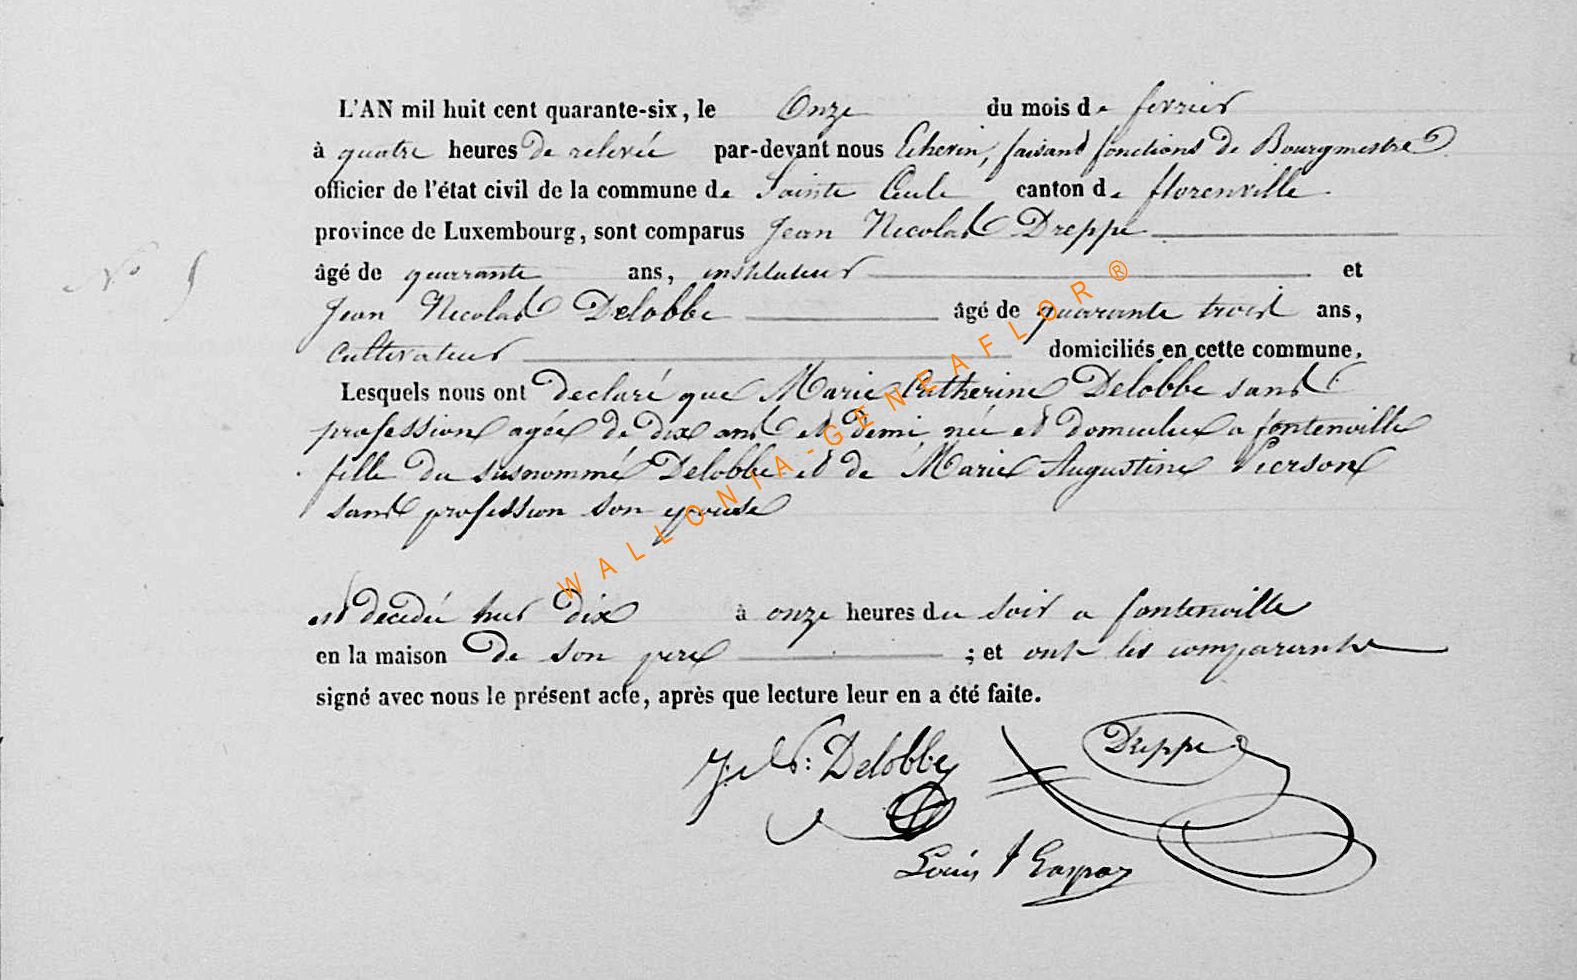 L'AN mil huit cent quarante-six, le Onze du mois de fevrier
à quatre heures de relevée par-devant nous Echevin, faisant fonctions de Bourgmestre
officier de l'état civil de la commune de Sainte Cecile canton de florenville
province de Luxembourg, sont comparus Jean Nicolas Dreppe
âgé de quarante ans, instituteur et
Jean Nicolas Delobbe âgé de quarante trois ans,
Cultivateur domiciliés en cette commune,
Lesquels nous ont declaré que Marie Catherine Delobbe sans
profession agée de dix ans et demi née et domiciliée a fontenoille
N° 5
fille du susnommé Delobbe et de Marie Augustine Pierson
sans profession son epouse
est decedée hier dix à onze heures du soir a fontenoille
en la maison de son pere ; et ont les comparants
signé avec nous le présent acte, après que lecture leur en a été faite.
J. N.: Delobbe Dreppe
Louis J Gaspar
WALLONIA-GENEAFLOR®